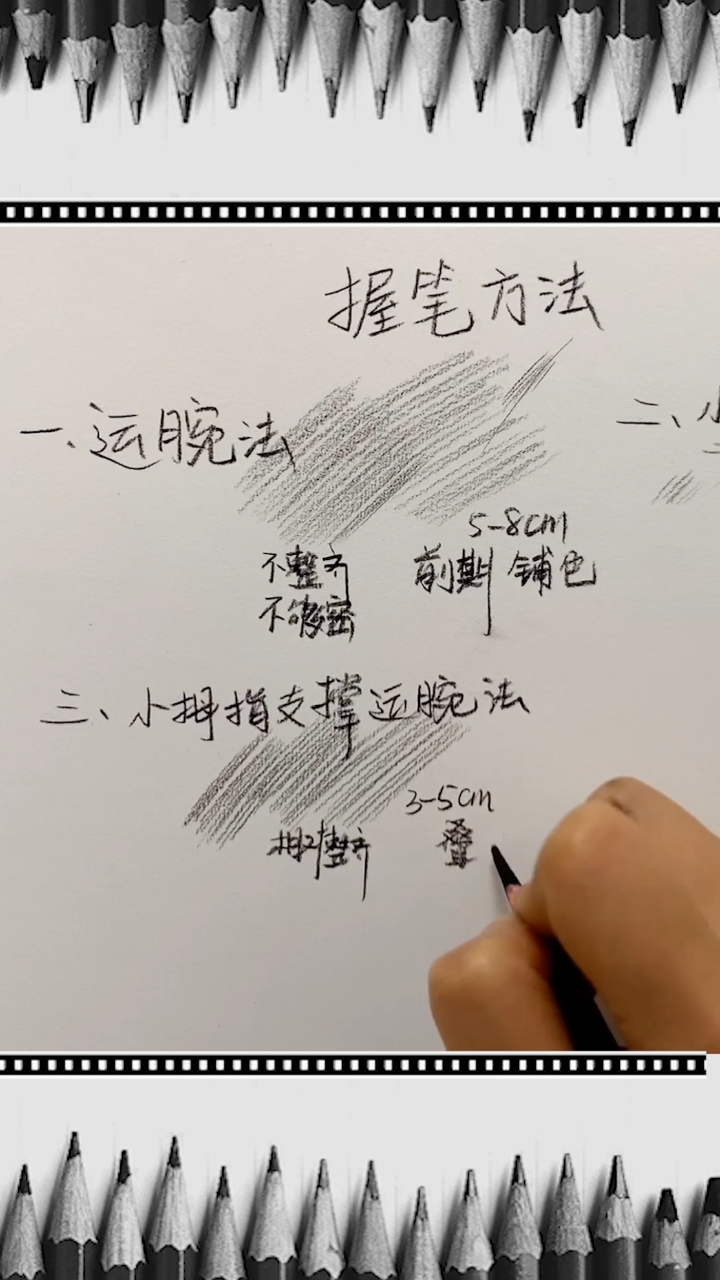 握笔方法
一、运腕法
二、小
5-8cm
不整齐
前期铺色
不够密
三、小拇指支撑运腕法
3-5cm
排对整齐
叠